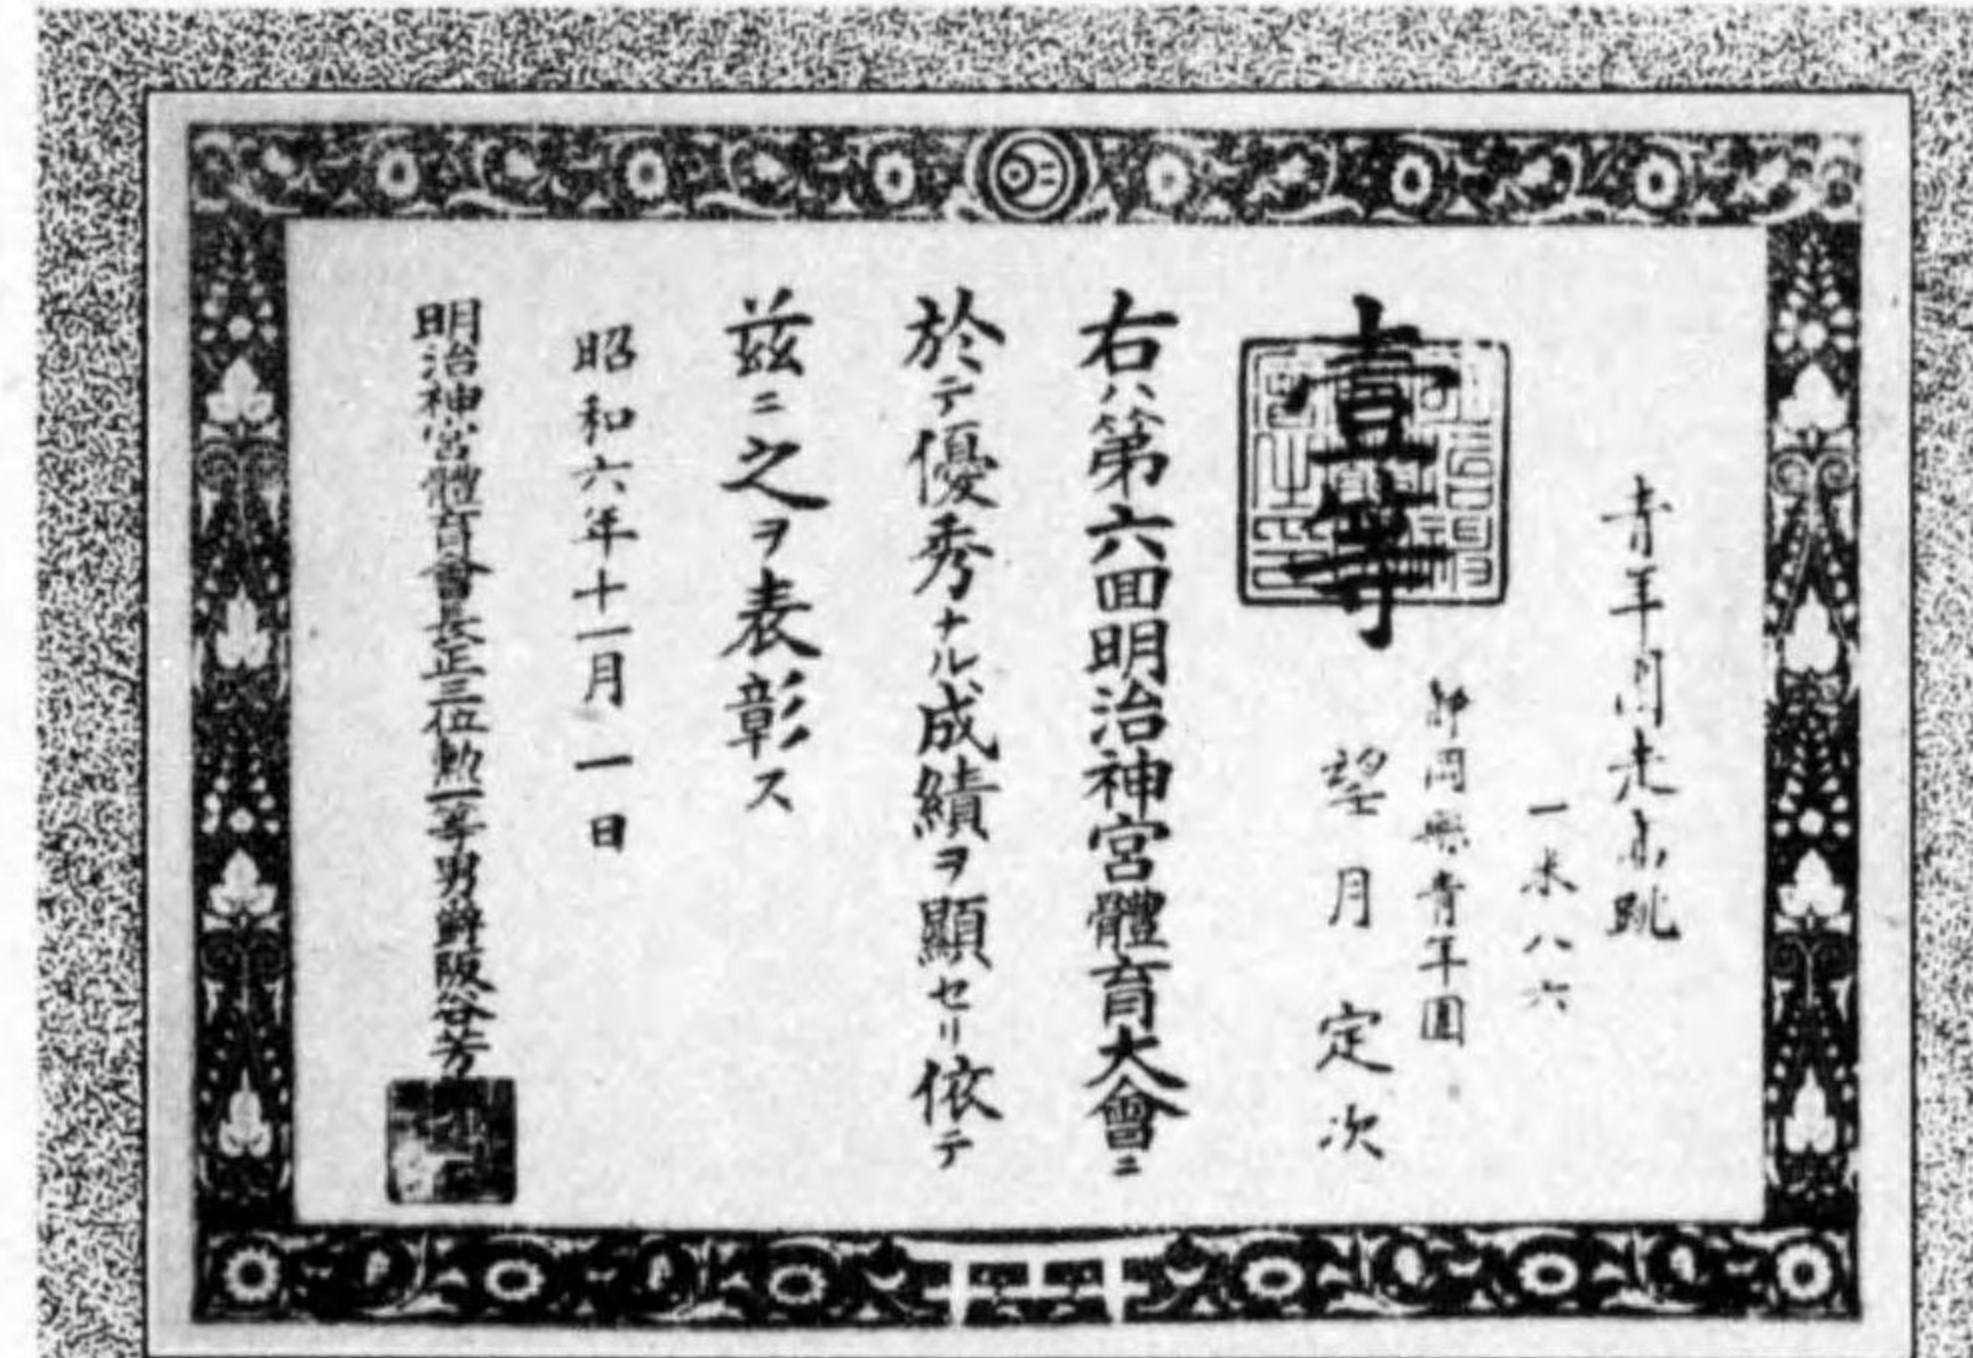 青年団走高跳
一米八六
静岡縣青年團
壹等
望月定次
右ハ第六回明治神宮體育大會ニ
於テ優秀ナル成績ヲ顯セリ依テ
茲ニ之ヲ表彰ス
昭和六年十一月一日
明治神宮體育會長正三位勲一等男爵阪谷芳